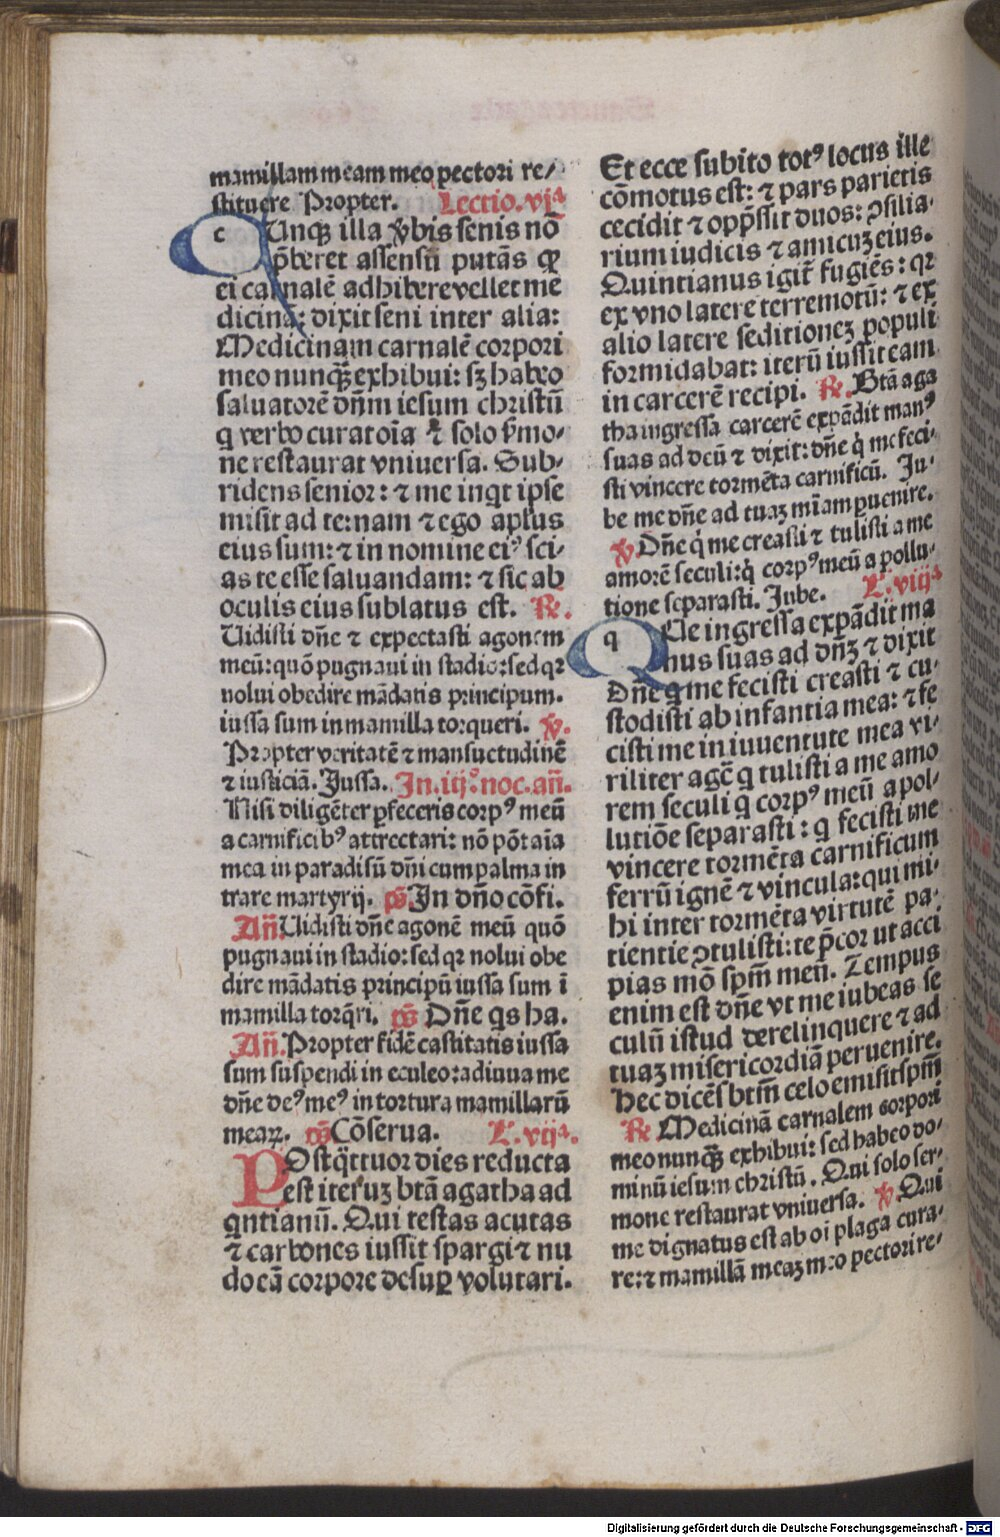 mamillam meam meo pectori re/
stituere Propter. Lectio.vjª
c QUnqꝫ illa v̾bis senis nō
p̄beret assensū putās qꝙ
ei carnalē adhibere vellet me
dicinā: dixit seni inter alia:
Medicinam carnalē corpori
meo nunqꝫ exhibui: sꝫ habeo
saluatorē dn̄m iesum christū
q verbo curat oīa ⁊ solo s̾mo/
ne restaurat vniuersa. Sub/
ridens senior: ⁊ me inqt ipse
misit ad te: nam ⁊ ego apl̄us
eius sum: ⁊ in nomine ei⁹ sci/
as te esse saluandam: ⁊ sic ab
oculis eius sublatus est. ℟.
Uidisti dn̄e ⁊ expectasti agonem
meū: quō pugnaui in stadio: sed qꝛ
nolui obedire mādatis principum.
iussa sum in mamilla torqueri. ℣.
Propter veritatē ⁊ mansuetudinē
⁊ iusticiā. Jussa. In.iij.noc.an̄.
Nisi diligēter ꝑfeceris corp⁹ meū
a carnificib⁹ attrectari: nō pōt aīa
mea in paradisū dn̄i cum palma in
trare martyrij. ps̄. In dn̄o cōfi.
An̄. Uidisti dn̄e agonē meū quō
pugnaui in stadio: sed qꝛ nolui obe
dire mādatis principū iussa sum ī
mamilla torq̄ri. ps̄ Dn̄e qs ha.
An̄. Propter fidē castitatis iussa
sum suspendi in eculeo: adiuua me
dn̄e de⁹ me⁹ in tortura mamillarū
mearꝝ. ps̄ Cōserua. L̄.vijª.
POst q̄ttuor dies reducta
est iteruꝫ btā agatha ad
qntianū. Qui testas acutas
⁊ carbones iussit spargi ⁊ nu
do eā corpore desuꝑ volutari.
Et ecce subito tot⁹ locus ille
cōmotus est: ⁊ pars parietis
cecidit ⁊ opp̄ssit duos: ꝯsilia/
rium iudicis ⁊ amicuꝫ eius.
Quintianus igit̄ fugiēs: qꝛ
ex vno latere terremotū: ⁊ ex
alio latere seditioneꝫ populi
formidabat: iterū iussit eam
in carcerē recipi. ℟. Btā aga
tha ingressa carcerē expādit man⁹
suas ad deū ⁊ dixit: dn̄e q̄ me feci/
sti vincere tormēta carnificū. Ju/
be me dn̄e ad tuaꝫ mīam ꝑuenire.
℣. Dn̄e q̄ me creasti ⁊ tulisti a me
amorē seculi: q̄ corp⁹ meū a pollu/
tione separasti. Jube. L̄.viijª
q QUe ingressa expādit ma
nus suas ad dn̄ꝫ ⁊ dixit
Dn̄e q me fecisti creasti ⁊ cu/
stodisti ab infantia mea: ⁊ fe
cisti me in iuuentute mea vi/
riliter agē: q tulisti a me amo
rem seculi q̄ corp⁹ meū a pol/
lutiōe separasti: q fecisti me
vincere tormēta carnificum
ferrū ignē ⁊ vincula: qui mi/
hi inter tormēta virtutē pa/
tientie ꝯtulisti: te p̄cor ut acci
pias mō spm̄ meū. Tempus
enim est dn̄e vt me iubeas se
culū istud derelinquere ⁊ ad
tuaꝫ misericordiā peruenire.
Hec dicēs btm̄ celo emisit spm̄
℟ Medicinā carnalem corpori
meo nunqꝫ exhibui: sed habeo do/
minū iesum christū. Qui solo ser/
mone restaurat vniuersa. ℣. Qui
me dignatus est ab oī plaga cura/
re: ⁊ mamillā meaꝫ meo pectori re/
Digitalisierung gefördert durch die Deutsche Forschungsgemeinschaft - DFG